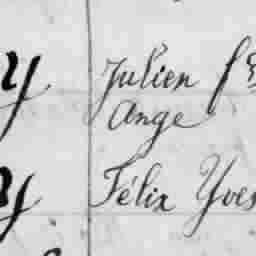 y Julien fs
Ange
y Félix Yves